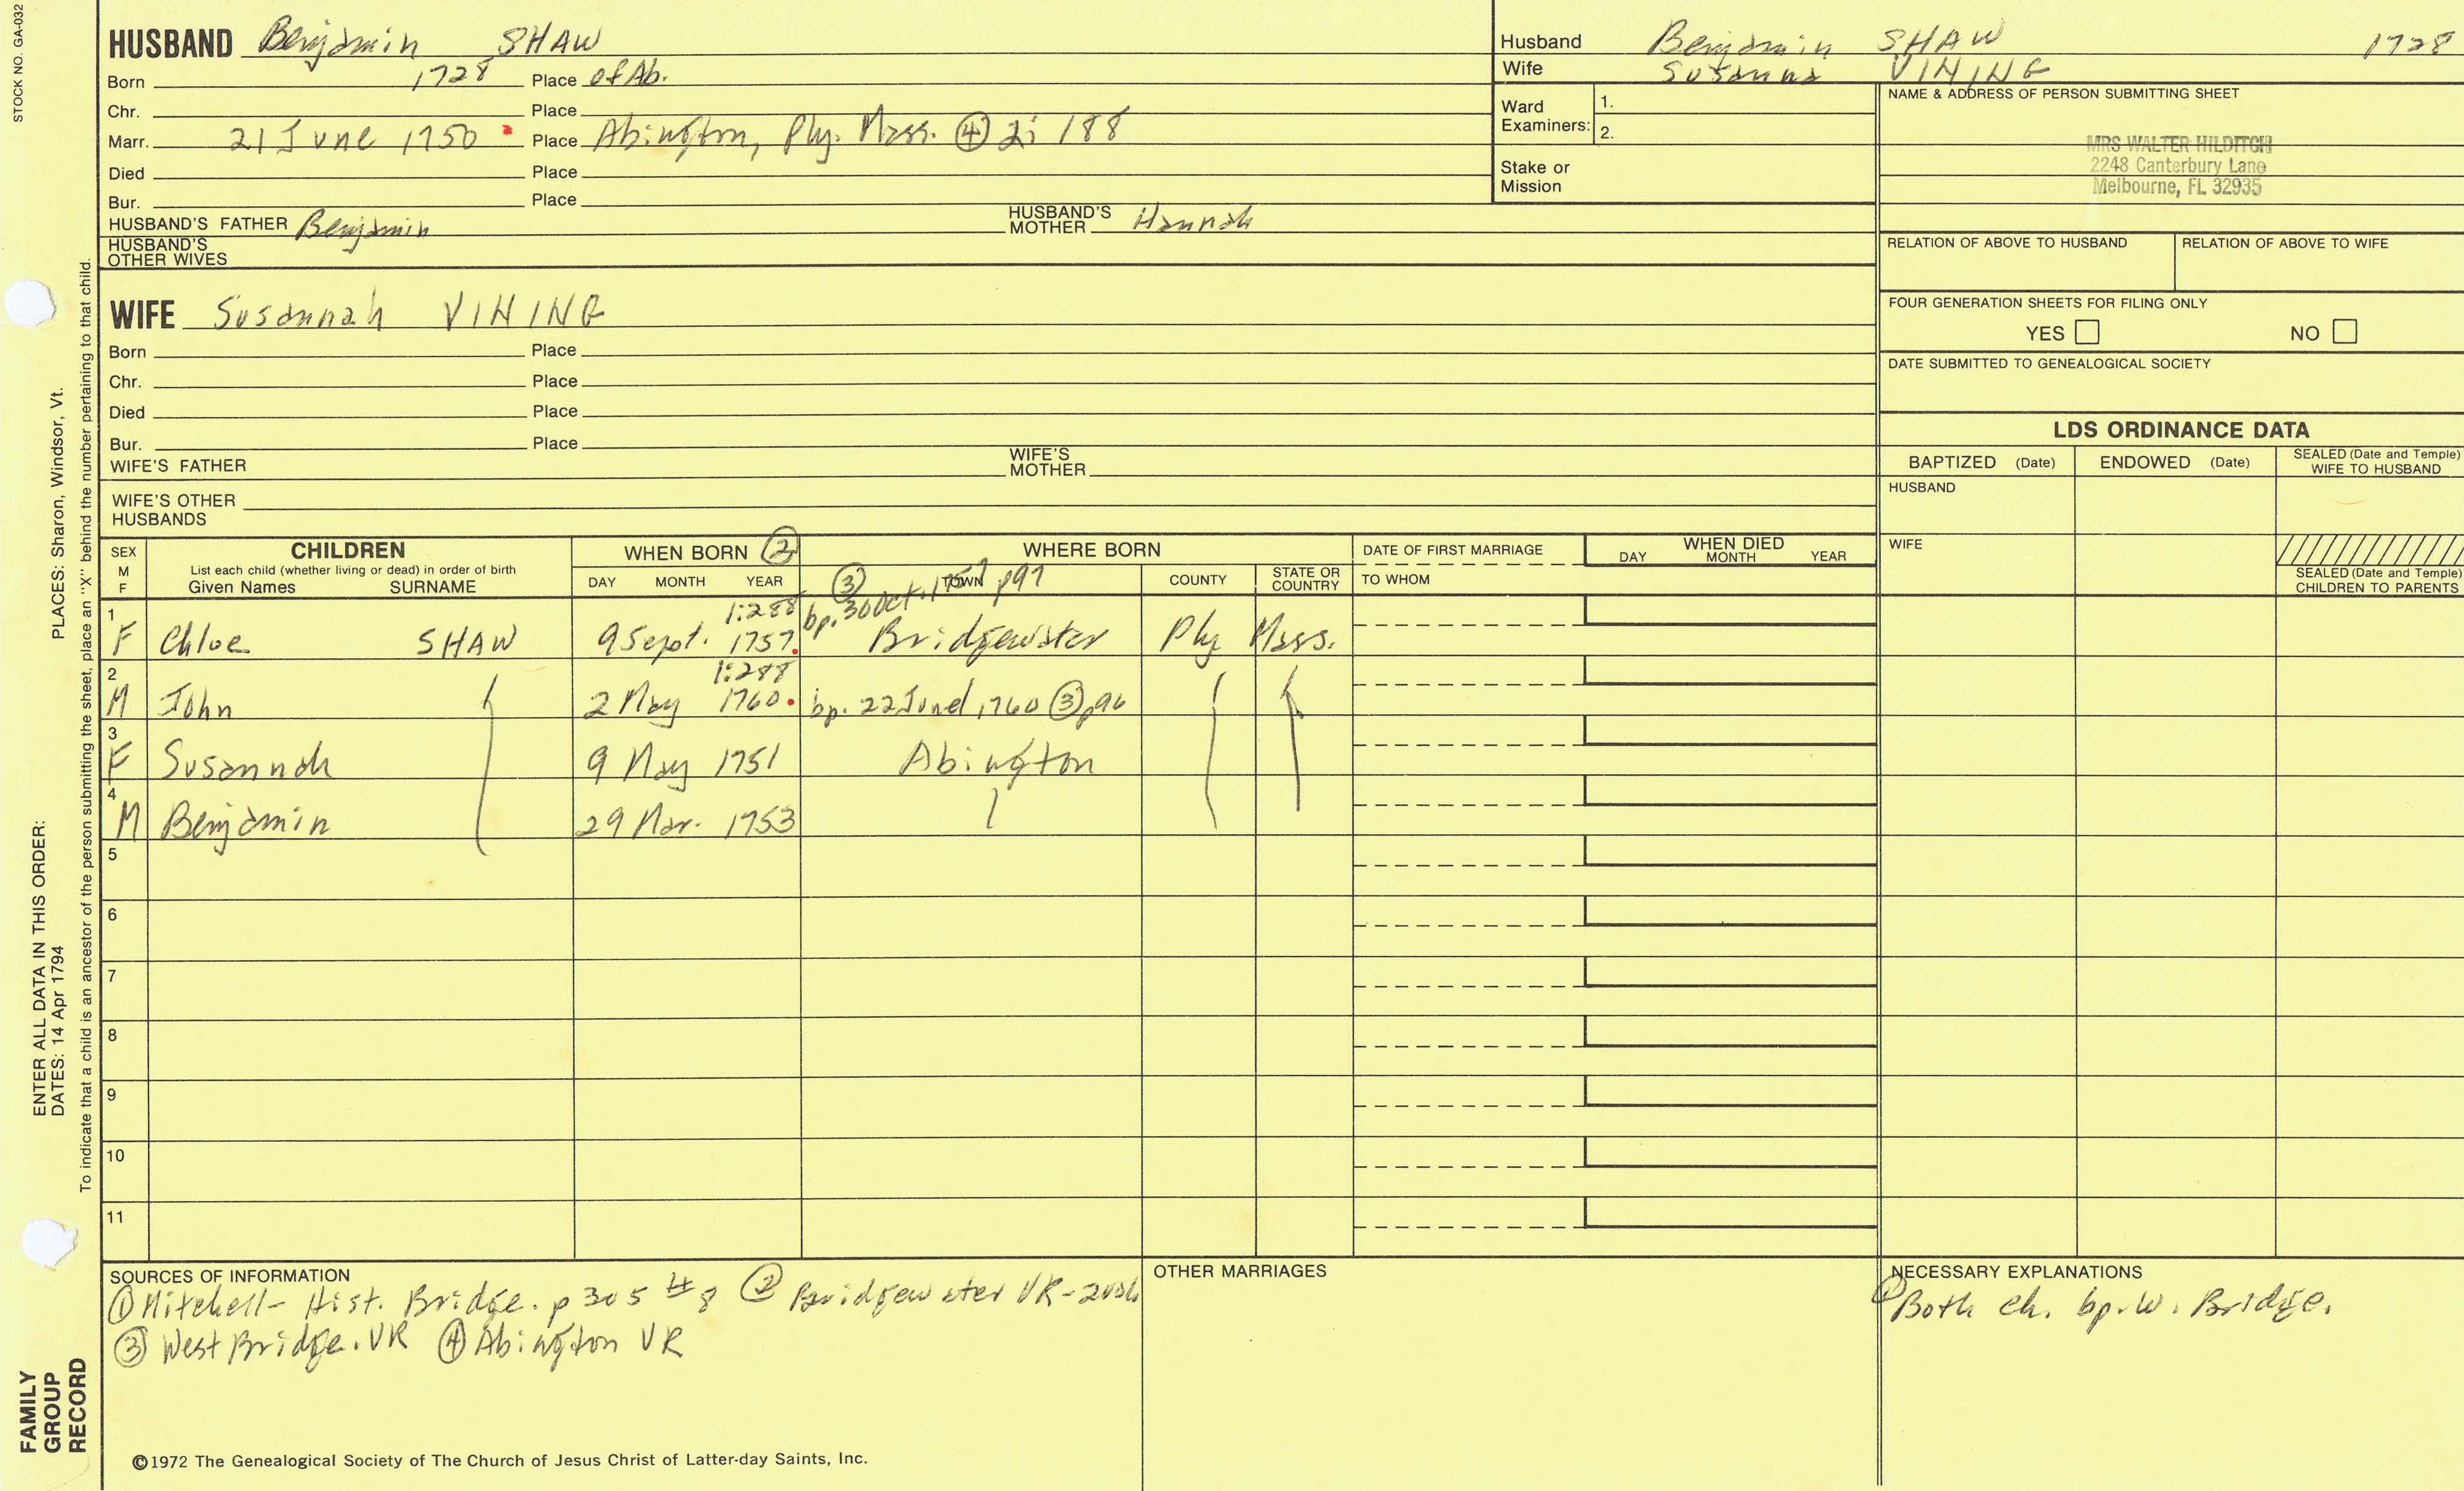 STOCK NO. GA-032
HUSBAND Benjamin SHAW
Born 1728 Place of Ab.
Chr. Place
Marr. 21 June 1750 Place Abington, Ply. Mass. ④ 2: 188
Died Place
Bur. Place
HUSBAND'S FATHER Benjamin HUSBAND'S MOTHER Hannah
HUSBAND'S OTHER WIVES
Husband Benjamin SHAW 1728
Wife Susanna VINING
Ward Examiners: 1.
2.
Stake or Mission
NAME & ADDRESS OF PERSON SUBMITTING SHEET
MRS WALTER HILDITCH
2248 Canterbury Lane
Melbourne, FL 32935
RELATION OF ABOVE TO HUSBAND RELATION OF ABOVE TO WIFE
FOUR GENERATION SHEETS FOR FILING ONLY
YES NO
DATE SUBMITTED TO GENEALOGICAL SOCIETY
WIFE Susannah VINING
Born Place
Chr. Place
Died Place
Bur. Place
WIFE'S FATHER WIFE'S MOTHER
WIFE'S OTHER HUSBANDS
LDS ORDINANCE DATA
BAPTIZED (Date) ENDOWED (Date) SEALED (Date and Temple) WIFE TO HUSBAND
HUSBAND
WIFE
SEALED (Date and Temple) CHILDREN TO PARENTS
SEX M F
CHILDREN
List each child (whether living or dead) in order of birth
Given Names SURNAME
WHEN BORN ②
DAY MONTH YEAR
WHERE BORN
TOWN COUNTY STATE OR COUNTRY
DATE OF FIRST MARRIAGE
TO WHOM
WHEN DIED
DAY MONTH YEAR
1:288 bp. 30 Oct. 1757 ③ p97
1 F Chloe SHAW 9 Sept. 1757. Bridgewater Ply Mass.
1:288
2 M John 2 May 1760. bp. 22 June, 1760 ③ p96
3 F Susannah 9 May 1751 Abington
4 M Benjamin 29 Mar. 1753
5
6
7
8
9
10
11
SOURCES OF INFORMATION
① Mitchell- Hist. Bridge. p 305 #8 ② Bridgewater VR-
③ West Bridge. VR ④ Abington VR
OTHER MARRIAGES
NECESSARY EXPLANATIONS
① Both ch. bp. W. Bridge.
©1972 The Genealogical Society of The Church of Jesus Christ of Latter-day Saints, Inc.
ENTER ALL DATA IN THIS ORDER:
DATES: 14 Apr 1794 PLACES: Sharon, Windsor, Vt.
To indicate that a child is an ancestor of the person submitting the sheet, place an "X" behind the number pertaining to that child.
FAMILY
GROUP
RECORD